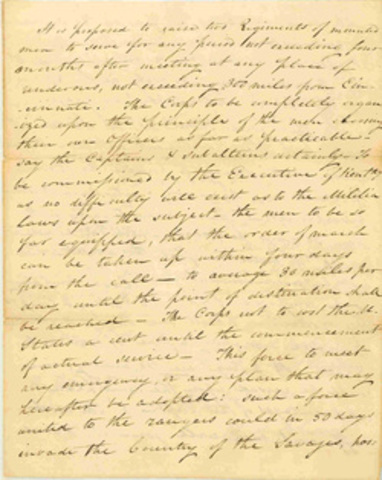 It is proposed to raise two Regiments of mounted
men to serve for any period not exceeding four
months after meeting at any place of
rendevous, not exceeding 300 miles from Cin-
cinnati. The Corps to be completely organ-
ized upon the principle of the men choosing
their own Officers as far as practicable -
say the Captains & Subalterns certainly - To
be commissioned by the Executive of Kentky
as no difficulty will exist as to the Militia
laws upon the subject - the men to be so
far equipped, that the order of march
can be taken up within four days
from the call - to average 30 miles per
day until the point of destination shall
be reached - The Corps not to cost the U.
States a cent until the commencement
of actual service - This force to meet
any emergency, or any plan that may
hereafter be adopted: such a force
united to the rangers could in 50 days
invade the Country of the Savages,